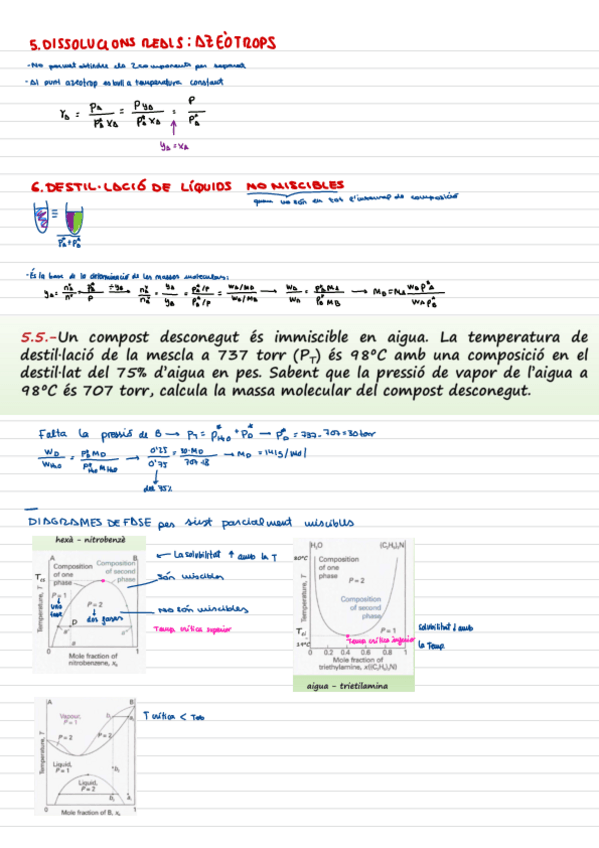 5. DISSOLUCIONS REALS: AZEÒTROPS
· No permet obtindre els 2 components per separat
· Al punt azeotrop es bull a temperatura constant
γA = PA / P*A XA = P yA / P*A XA = P / P*A
yA = xA
6. DESTIL·LACIÓ DE LÍQUIDS NO MISCIBLES
quan no són en tot l'interval de composició
P*A + P*B
· És la base de la determinació de les masses moleculars:
5.5.-Un compost desconegut és immiscible en aigua. La temperatura de
destil·lació de la mescla a 737 torr (PT) és 98ºC amb una composició en el
destil·lat del 75% d'aigua en pes. Sabent que la pressió de vapor de l'aigua a
98ºC és 707 torr, calcula la massa molecular del compost desconegut.
Falta la pressió de B → PT = P*H2O + P*D → P*D = 737-707 = 30 torr
WD / WH2O = P*D MD / P*H2O MH2O → 0'25 / 0'75 = 30·MD / 707·18 → MD = 141 g/mol
del 75%
DIAGRAMES DE FASE per sist parcialment miscibles
hexà - nitrobenzè
A
B
Composition of one phase
Composition of second phase
Tcs
P = 1
una fase
P = 2
dos fases
D
Temperature, T
0
1
Mole fraction of nitrobenzene, xB
La solubilitat ↑ amb la T
Són miscibles
No són miscibles
Temp. crítica superior
H2O
(C2H5)3N
80ºC
Composition of one phase
P = 2
Composition of second phase
P = 1
Temperature, T
Temp crítica inferior
0 0.2 0.4 0.6 0.8 1
Mole fraction of triethylamine, x((C2H5)3N)
aigua - trietilamina
solubilitat ↓ amb
la Temp.
A
B
Vapour, P = 1
P = 2
P = 2
Liquid, P = 1
Liquid, P = 2
Temperature, T
0
1
Mole fraction of B, xB
T crítica < Teb